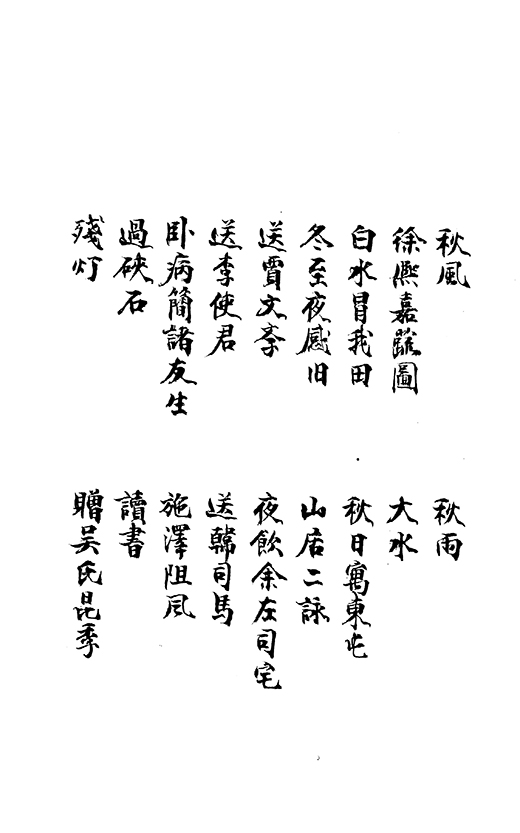 秋風
秋雨
徐熈嘉蹤圖
大水
白水冒我田
秋日寓東屯
冬至夜感旧
山居二詠
送賈文李
夜飲余左司宅
送李使君
送韓司馬
卧病簡諸友生
施澤阻風
過硤石
讀書
殘灯
贈吴氏昆季